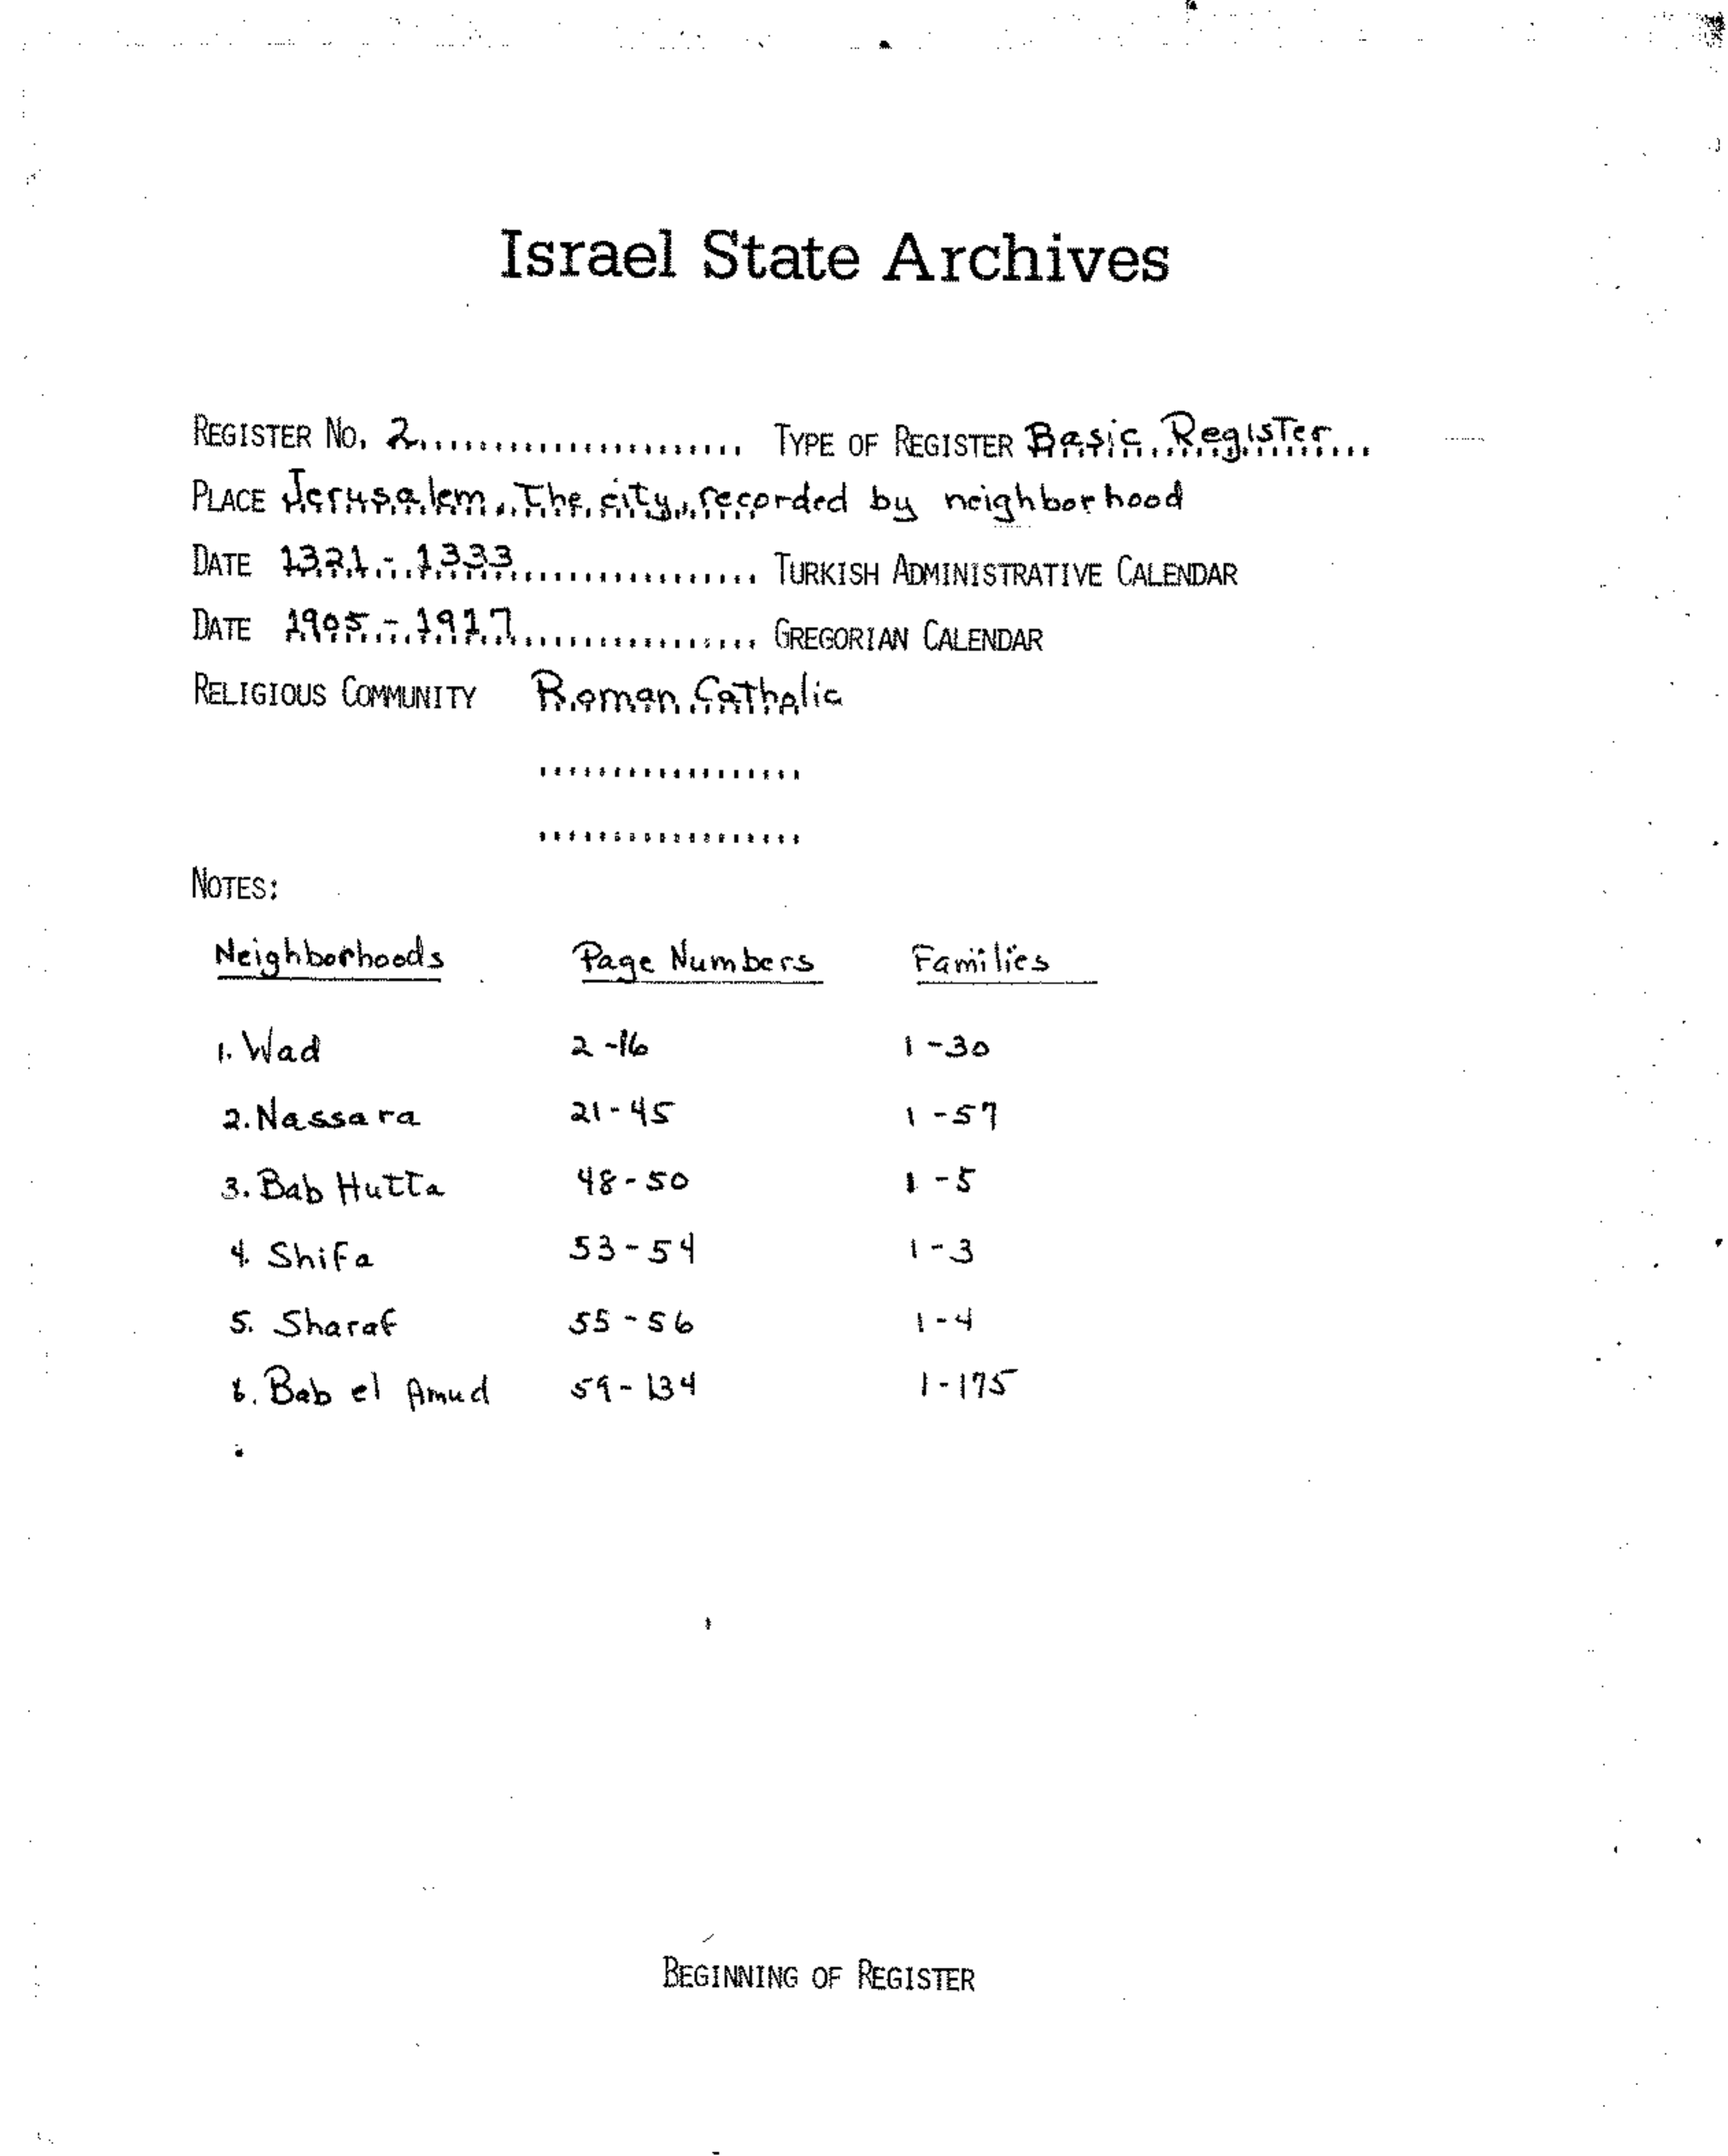 Israel State Archives
REGISTER NO. 2 TYPE OF REGISTER Basic Register
PLACE Jerusalem, The city, recorded by neighborhood
DATE 1321 - 1333 TURKISH ADMINISTRATIVE CALENDAR
DATE 1905 - 1917 GREGORIAN CALENDAR
RELIGIOUS COMMUNITY Roman Catholic
NOTES:
Neighborhoods Page Numbers Families
1. Wad 2-16 1-30
2. Nassara 21-45 1-57
3. Bab Hutta 48-50 1-5
4. Shifa 53-54 1-3
5. Sharaf 55-56 1-4
6. Bab el Amud 59-134 1-175
BEGINNING OF REGISTER